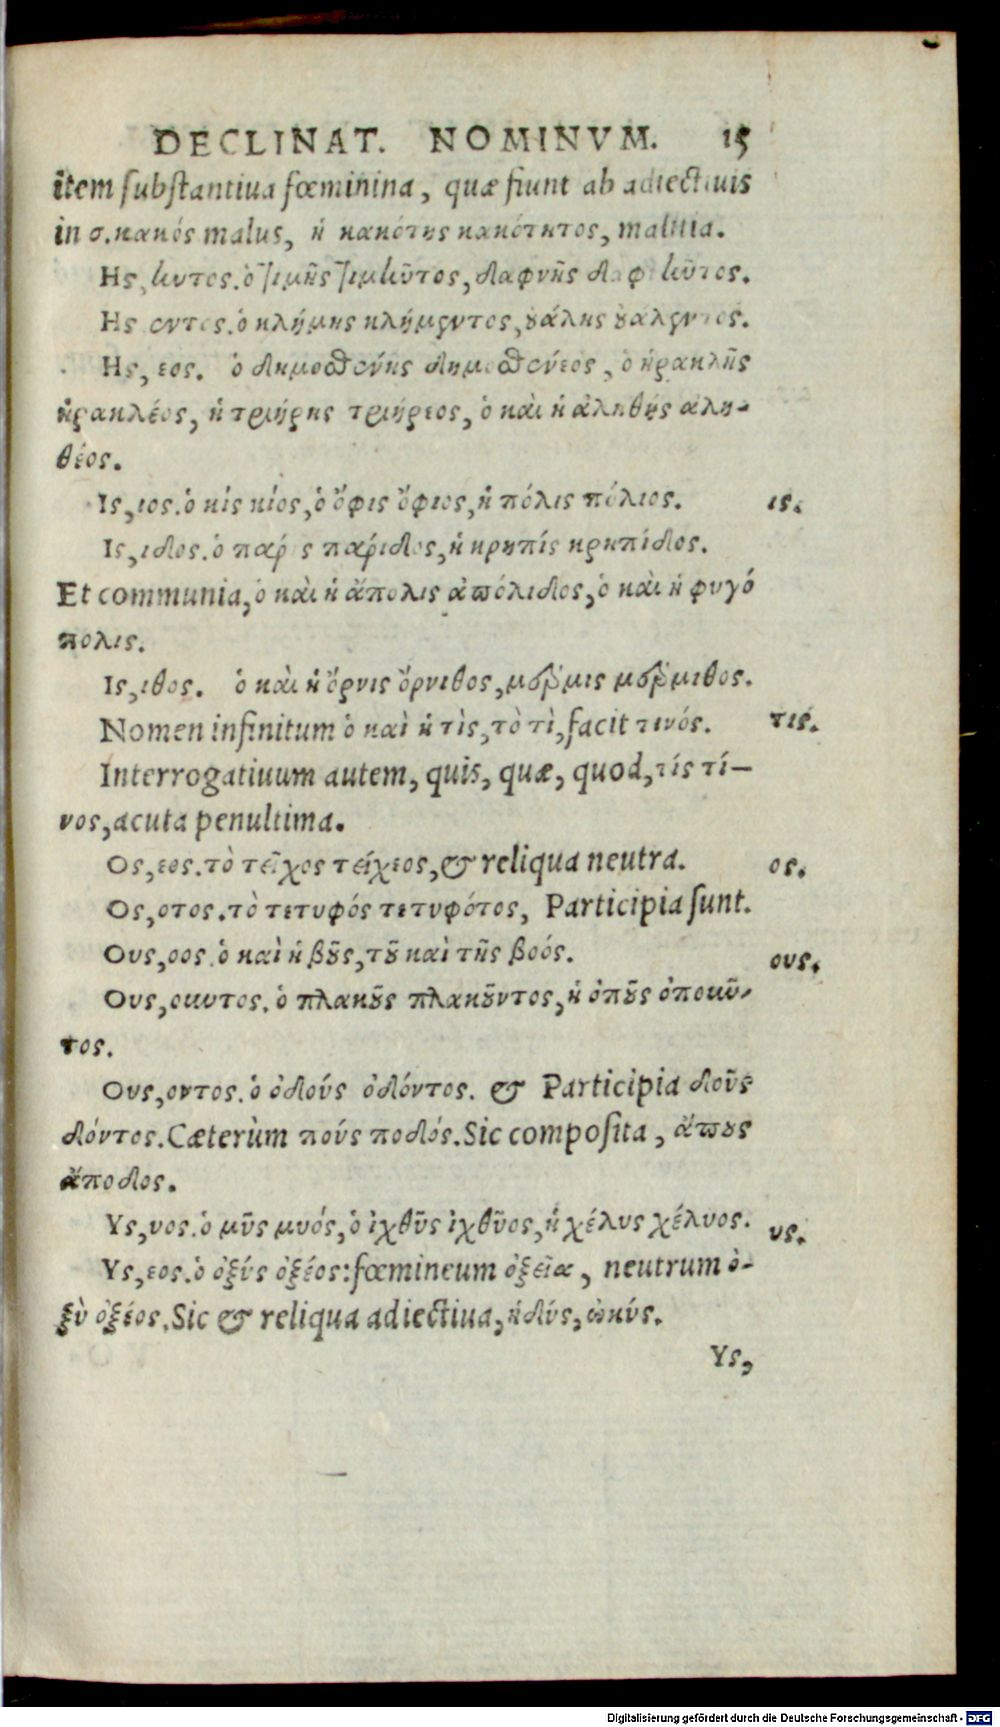 DECLINAT. NOMINVM. 15
item substantiua fœminina, quæ fiunt ab adiectiuis
in σ. κακός malus, ἡ κακότης κακότητος, malitia.
Ης, ηντος. ὁ σιμῆς σιμῆντος, δαφνῆς δαφνῆντος.
Ης εντος. ὁ κλήμης κλήμεντος, ὀάλης ὀάλεντος.
Ης, εος. ὁ δημοσθένης δημοσθένεος, ὁ ἡρακλῆς
ἡρακλέος, ἡ τριήρης τριήρεος, ὁ καὶ ἡ ἀληθής ἀλη-
θέος.
Ις, ιος. ὁ κίς κίος, ὁ ὄφις ὄφιος, ἡ πόλις πόλιος. ις.
Ις, ιδος. ὁ πάρις πάριδος, ἡ κρηπίς κρηπίδος.
Et communia, ὁ καὶ ἡ ἄπολις ἀπόλιδος, ὁ καὶ ἡ φυγό
πολις.
Ις, ιθος. ὁ καὶ ἡ ὄρνις ὄρνιθος, μέρμις μέρμιθος.
Nomen infinitum ὁ καὶ ἡ τὶς, τὸ τὶ, facit τινός. τις.
Interrogatiuum autem, quis, quæ, quod, τίς τί-
νος, acuta penultima.
Ος, εος. τὸ τεῖχος τείχεος, & reliqua neutra. ος.
Ος, οτος. τὸ τετυφός τετυφότος, Participia sunt.
Ους, οος. ὁ καὶ ἡ βοῦς, τοῦ καὶ τῆς βοός. ους.
Ους, ουντος. ὁ πλακοῦς πλακοῦντος, ἡ ὀποῦς ὀποιοῦν-
τος.
Ους, οντος. ὁ ὀδούς ὀδόντος. & Participia δοῦς
δόντος. Cæterùm πούς ποδός. Sic composita, ἄπους
ἄποδος.
Υς, υος. ὁ μῦς μυός, ὁ ἰχθῦς ἰχθῦος, ἡ χέλυς χέλυος. υς.
Υς, εος. ὁ ὀξύς ὀξέος: fœmineum ὀξεῖα, neutrum ὀ-
ξὺ ὀξέος. Sic & reliqua adiectiua, ἡδύς, ὠκύς.
Υς,
Digitalisierung gefördert durch die Deutsche Forschungsgemeinschaft - DFG